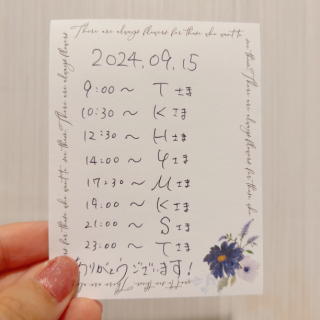 There are always flowers for those who want to see them.
2024.09.15
9:00 〜 Tさま
10:30 〜 Kさま
12:30 〜 Hさま
14:00 〜 Yさま
17:30 〜 Mさま
19:00 〜 Kさま
21:00 〜 Sさま
23:00 〜 Tさま
ありがとうございます!